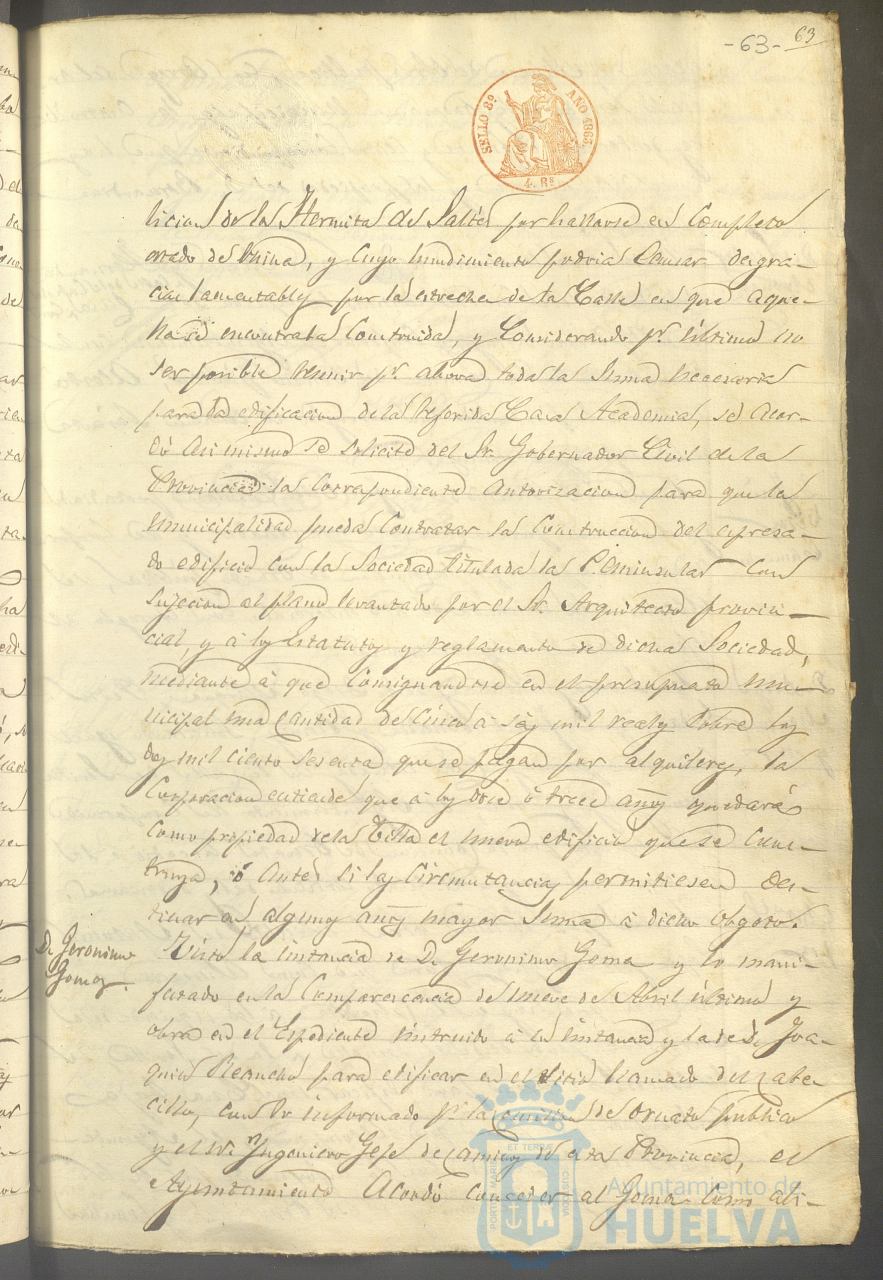 -63- 63
SELLO 8º AÑO 1863.
4. Rs
licion de la Hermita de Saltés por hallarse en completo
estado de ruina, y cuyo hundimiento podria causar desgra-
cias lamentables por la estrechez de la Calle en que aque-
lla se encontraba construida, y Considerando pr. último no
ser posible reunir pr. ahora toda la suma necesaria
para la edificacion de la referida Casa Academia, se acor-
dó asi mismo se solicite del Sr. Gobernador Civil de la
Provincia la correspondiente autorizacion para que la
municipalidad pueda contratar la construccion del espresa-
do edificio con la Sociedad titulada la Peninsular con
sujecion al plano levantado por el Sr. Arquitecto provin-
cial, y á los Estatutos y reglamento de dicha Sociedad,
mediante á que consignandose en el presupuesto mu-
nicipal una cantidad de cinco á seis mil reales sobre los
dos mil ciento sesenta que se pagan por alquileres, la
Corporacion entiende que á los doce ó trece años quedará
como propiedad de la Villa el nuevo edificio que se cons-
truya, ó antes si las circunstancias permitiesen des-
tinar en algunos años mayor suma á dicho obgeto.
D. Geronimo
Gomez.
Visto la instancia de D. Geronimo Goma y lo mani-
festado en la comparescencia de nueve de Abril último y
obra en el Espediente instruido á su instancia y la de D. Joa-
quin para edificar en el sitio llamado del Cabe-
cillo, con lo informado pr. la comision de ornato publico
y el Sr. Ingeniero Gefe de caminos de esta Provincia, el
Ayuntamiento acordó conceder al Goma como ali-
PORTUS MARIS ET TERRAE CUSTODIA
Ayuntamiento de
HUELVA